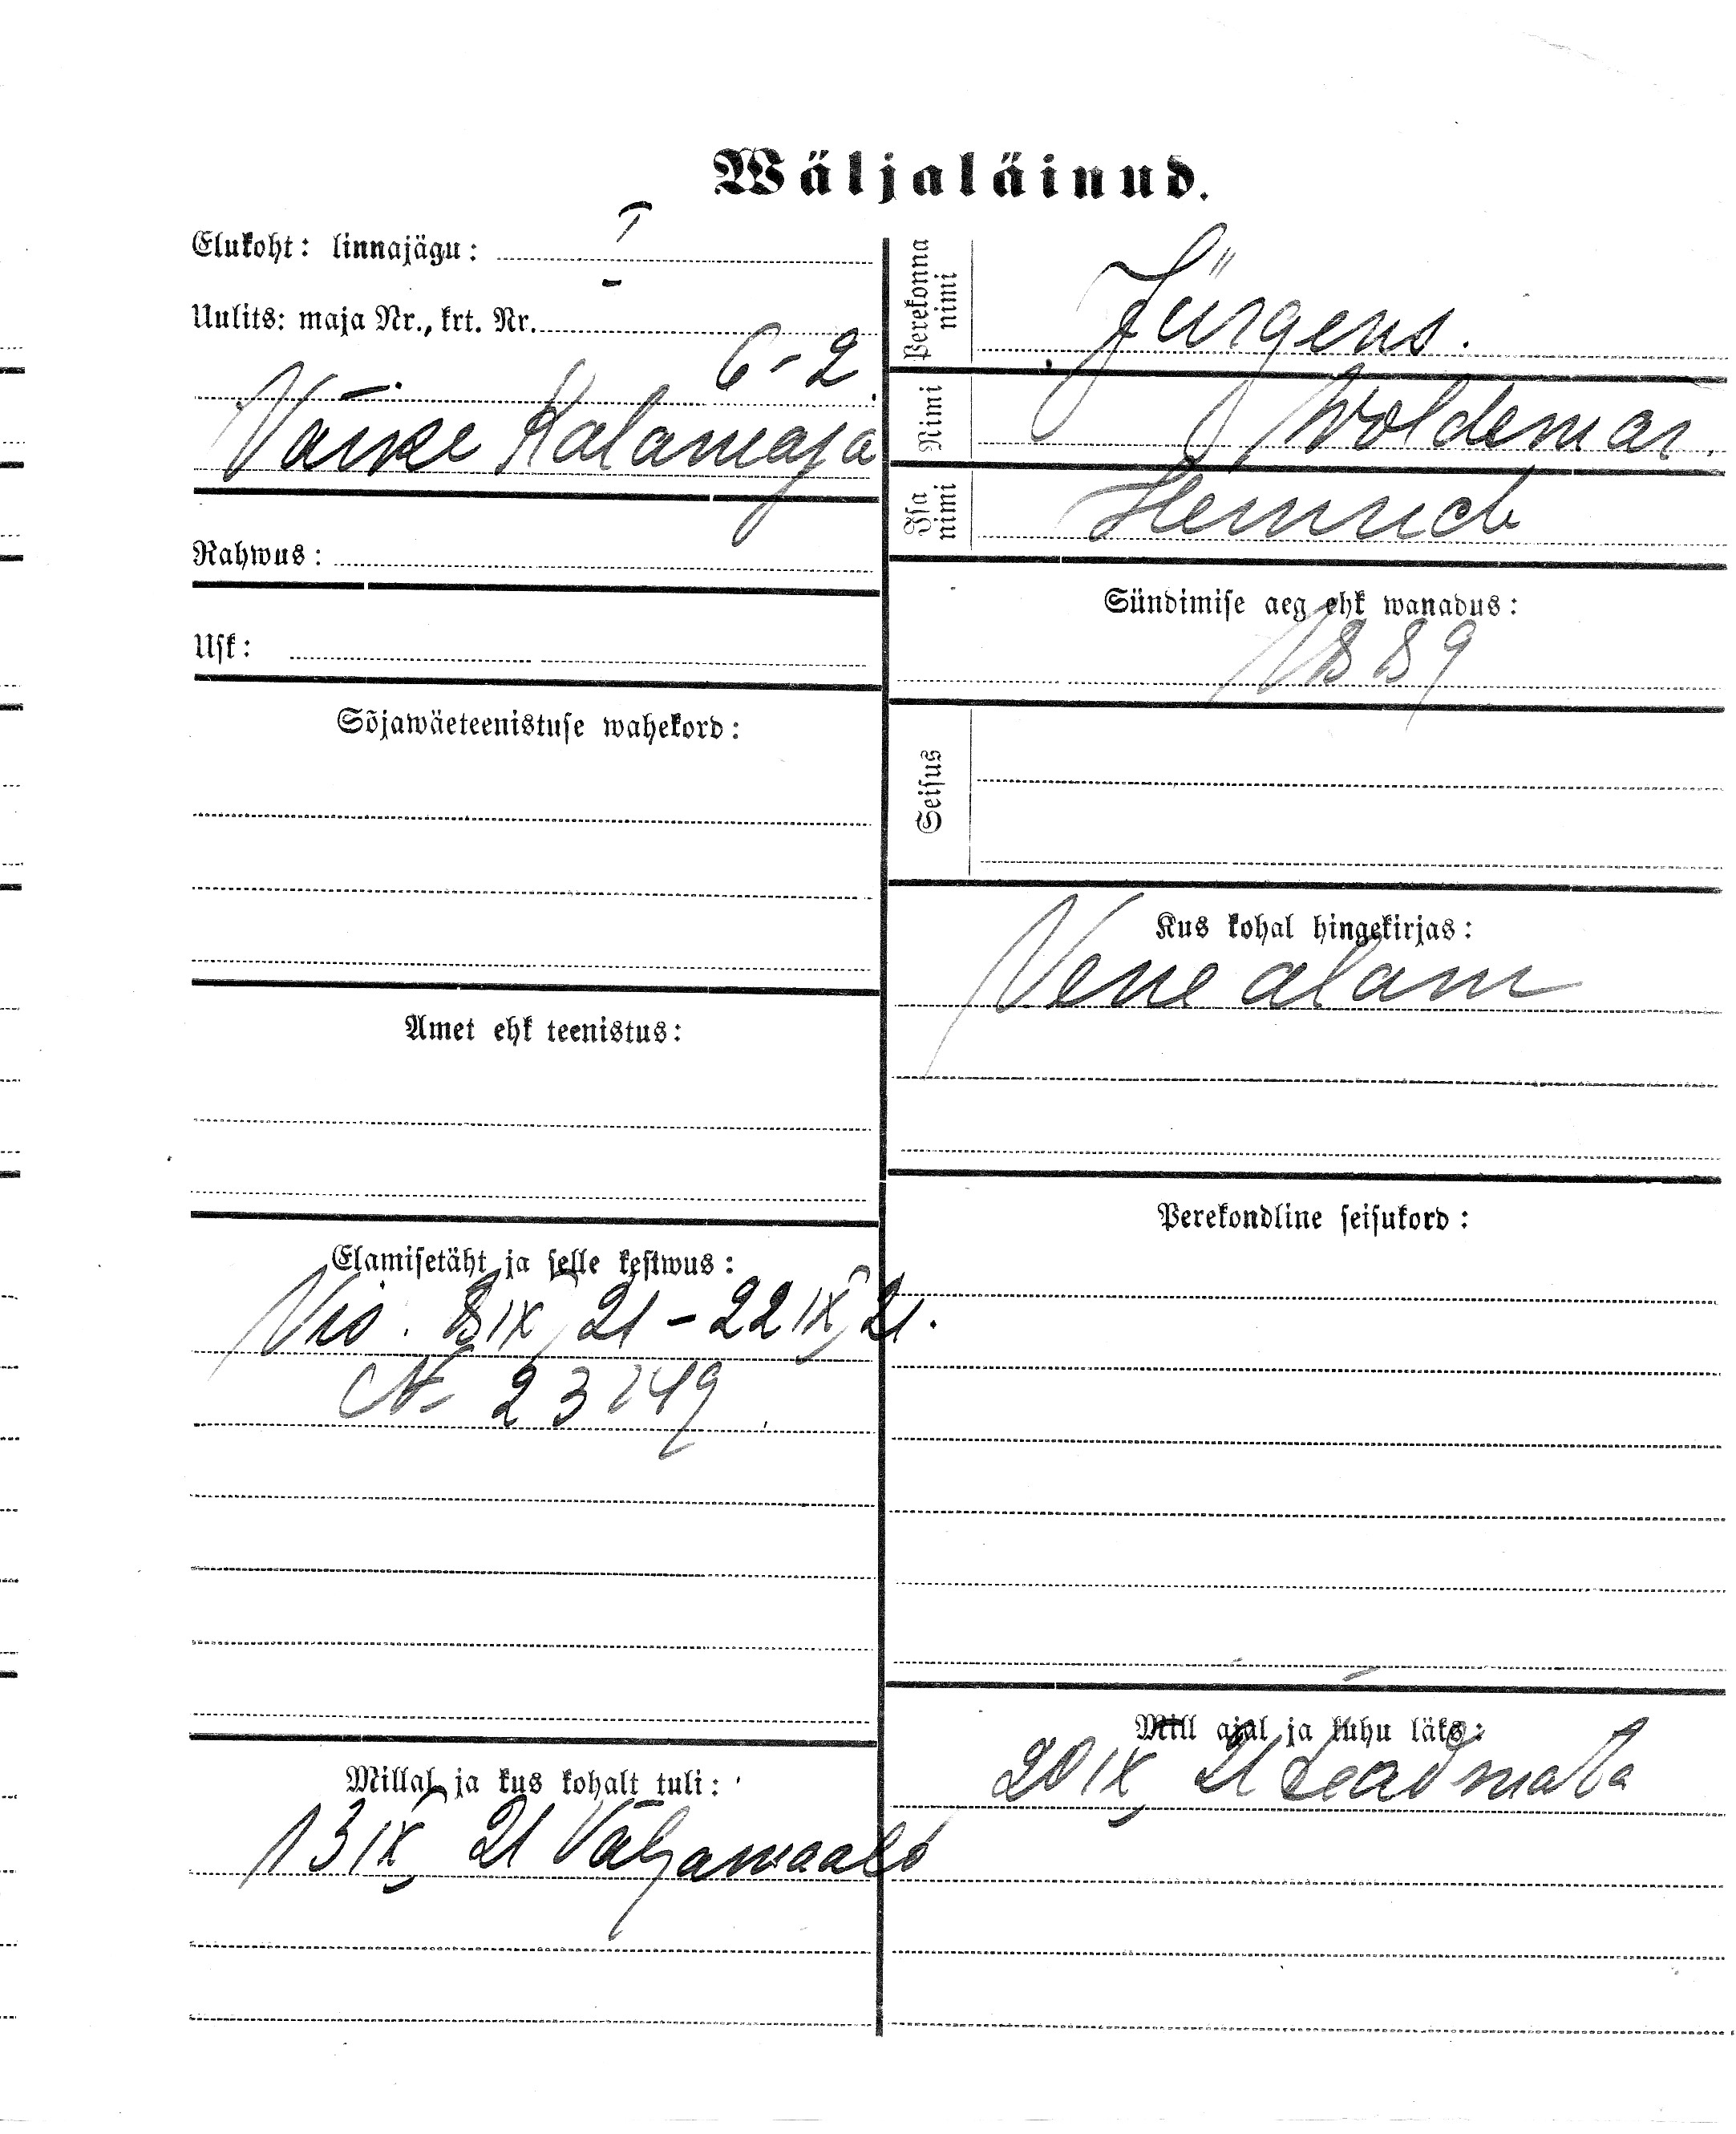 Wäljaläinud.
Elukoht: linnajägu: I
Uulits: maja Nr., krt. Nr.
6-2
Väike Kalamaja
Rahwus:
Usk:
Sõjawäeteenistuse wahekord:
Amet ehk teenistus:
Elamisetäht ja selle kestwus:
Vis. 8 IX 21 - 22 IX 21.
№ 23249
Millal ja kus kohalt tuli:
13 IX 21 Väljamaalt
Perekonna nimi Jürgens.
Nimi Woldemar.
Isa nimi Heinrich
Sündimise aeg ehk wanadus:
1889
Seisus
Kus kohal hingekirjas:
Vene alam
Perekondline seisukord:
Mill ajal ja kuhu läks:
20 IX 21 teadmata